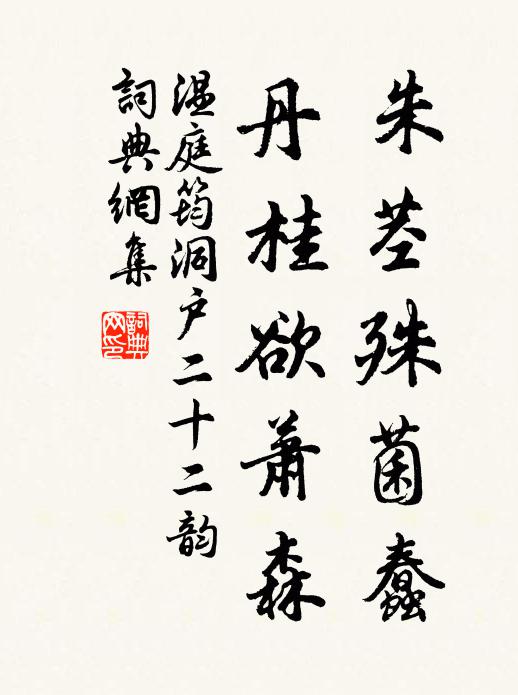 朱茎殊菌蠢
丹桂欲萧森
温庭筠洞户二十二韵
詞典網集
詞典网印